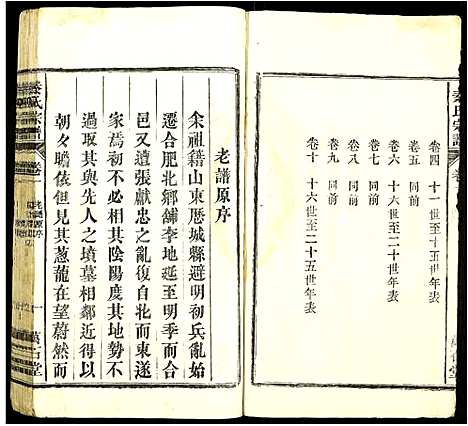 卷四 十一世至十五世年表
卷五 同前
卷六 十六世至二十世年表
卷七 同前
卷八 同前
卷九 同前
卷十 十六世至二十五世年表
老譜原序
余祖籍山東歷城縣避明初兵亂始
遷合肥北鄉舖李地延至明季而合
肥又遭張獻忠之亂復自北而東遂
家焉初不必相其陰陽度其地勢不
過取其與先人之墳墓相鄰近得以
朝夕瞻依但見其蔥蘢在望蔚然而
老譜原序